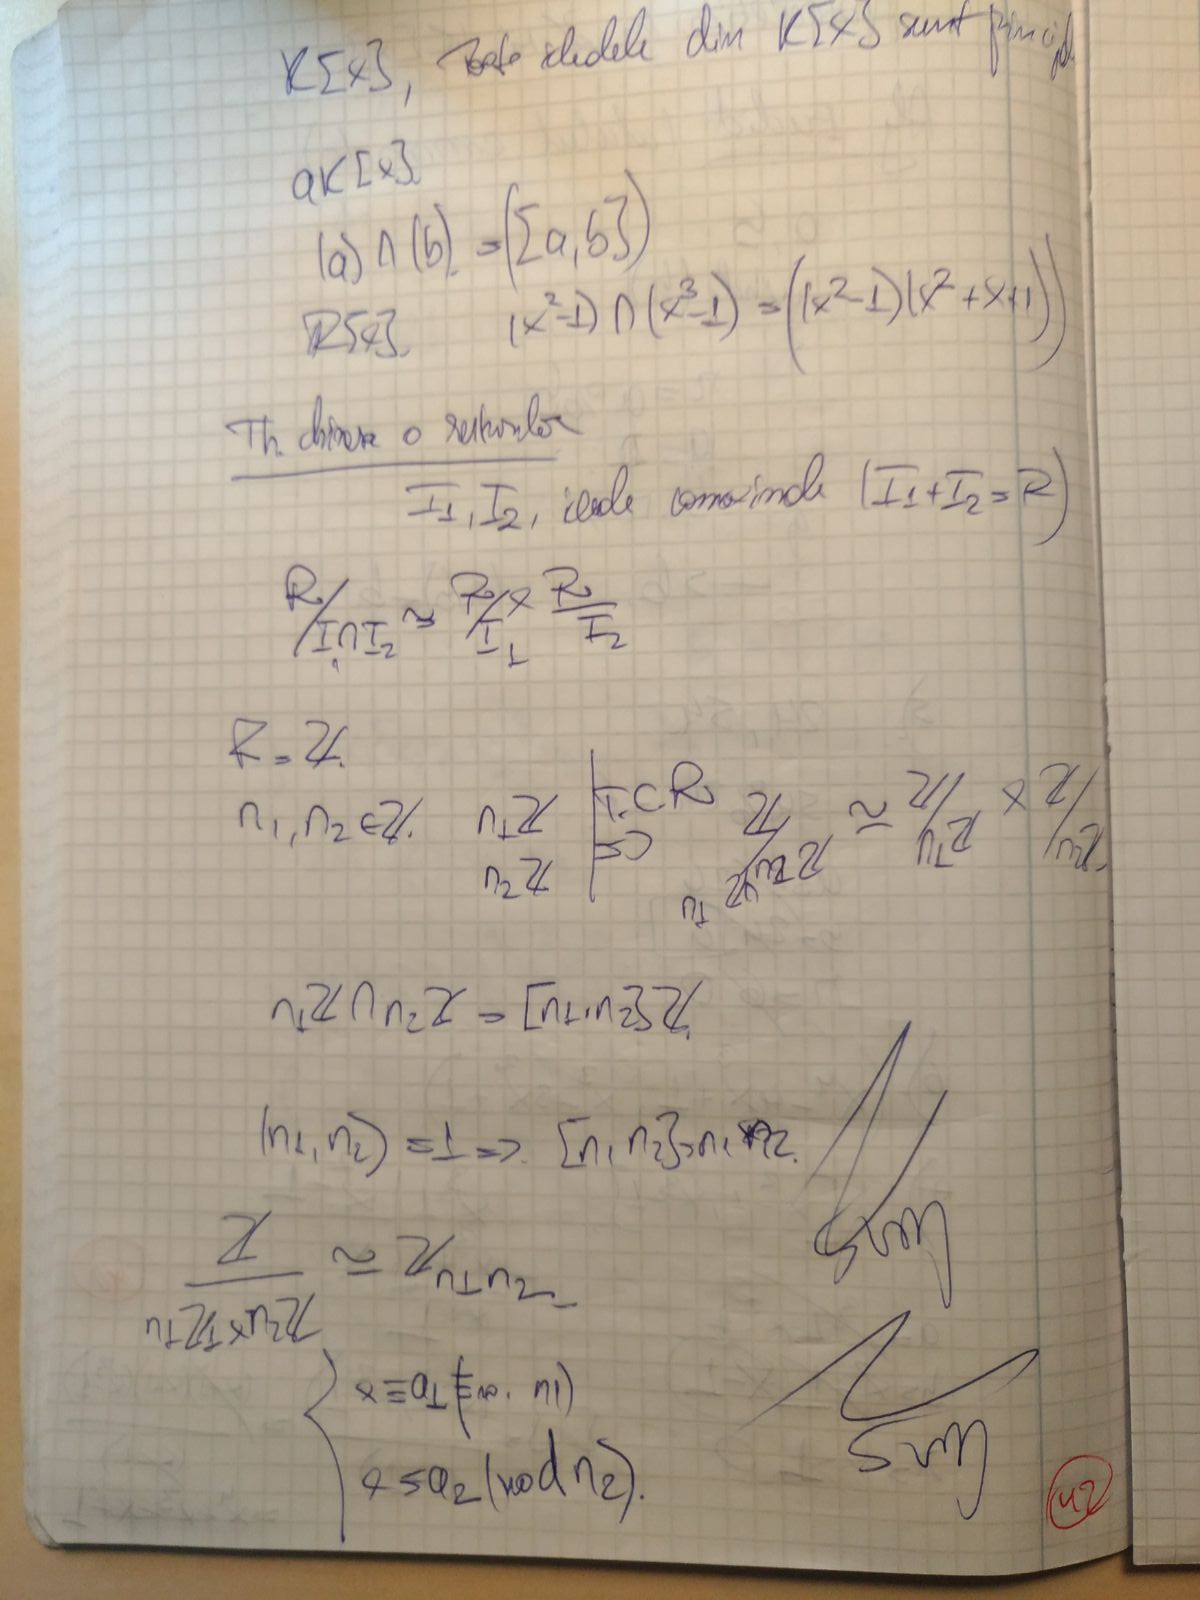 K[x], Toate idealele din K[x] sunt principale
aK[x].
(a) ∩ (b) = ([a,b])
R[x]. (x²-1) ∩ (x³-1) = ((x²-1)(x²+x+1))
Th. chineză a resturilor
I₁, I₂, ideale comaximale (I₁+I₂=R)
R/I₁∩I₂ ≃ R/I₁ × R/I₂
R = ℤ.
n₁, n₂ ∈ ℤ. n₁ℤ n₂ℤ | T.C.R => ℤ/n₁ℤ∩n₂ℤ ≃ ℤ/n₁ℤ × ℤ/n₂ℤ.
n₁ℤ ∩ n₂ℤ = [n₁,n₂]ℤ.
(n₁,n₂) = 1 => [n₁ n₂] = n₁ n₂.
ℤ/n₁ℤ×n₂ℤ ≃ ℤn₁n₂
{ x ≡ a₁ ( n₁)
x ≡ a₂ (mod n₂).
42